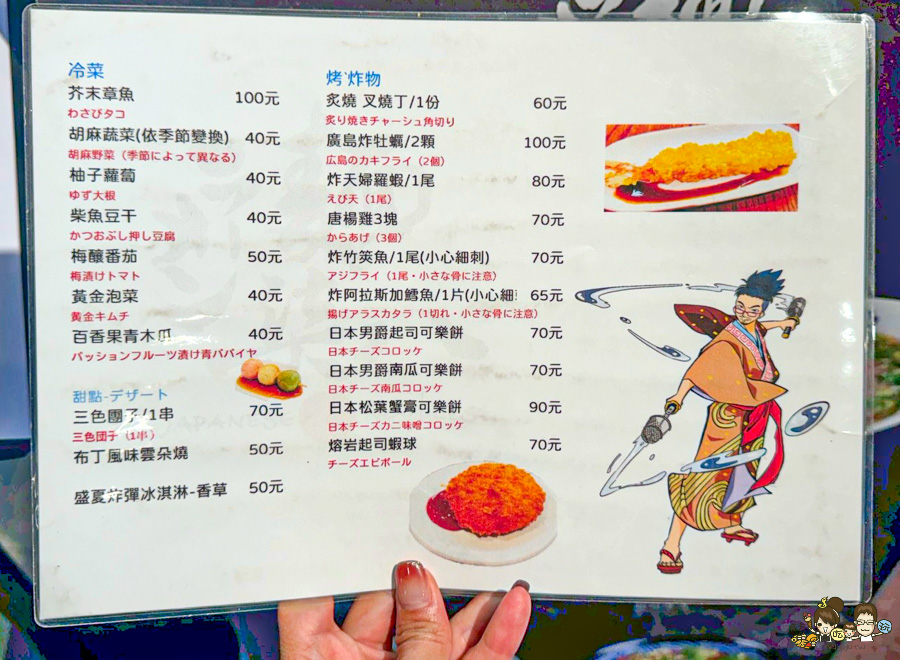 冷菜
芥末章魚 100元
わさびタコ
胡麻蔬菜(依季節變換) 40元
胡麻野菜（季節によって異なる）
柚子蘿蔔 40元
ゆず大根
柴魚豆干 40元
かつおぶし押し豆腐
梅釀番茄 50元
梅漬けトマト
黃金泡菜 40元
黄金キムチ
百香果青木瓜 40元
パッションフルーツ漬け青パパイヤ
甜點-デザート
三色團子/1串 70元
三色団子（1串）
布丁風味雲朵燒 50元
盛夏炸彈冰淇淋-香草 50元
烤`炸物
炙燒 叉燒丁/1份 60元
炙り焼きチャーシュ角切り
廣島炸牡蠣/2顆 100元
広島のカキフライ（2個）
炸天婦羅蝦/1尾 80元
えび天（1尾）
唐楊雞3塊 70元
からあげ（3個）
炸竹筴魚/1尾(小心細刺) 70元
アジフライ（1尾・小さな骨に注意）
炸阿拉斯加鱈魚/1片(小心細 65元
揚げアラスカタラ（1切れ・小さな骨に注意）
日本男爵起司可樂餅 70元
日本チーズコロッケ
日本男爵南瓜可樂餅 70元
日本チーズ南瓜コロッケ
日本松葉蟹膏可樂餅 90元
日本チーズカニ味噌コロッケ
熔岩起司蝦球 70元
チーズエビボール